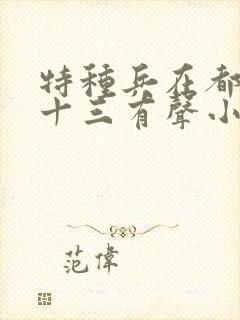 特種兵在都
十三有聲小
范偉